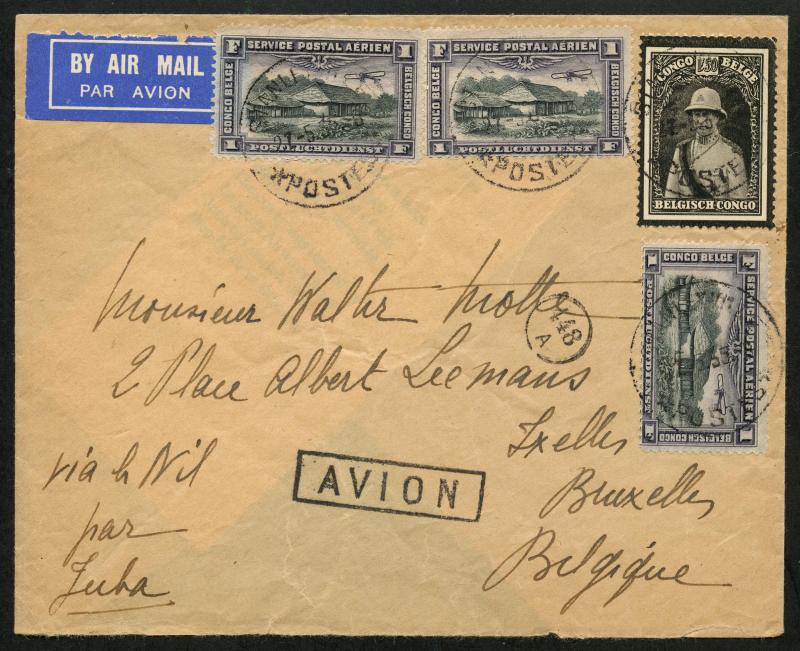 BY AIR MAIL
PAR AVION
F SERVICE POSTAL AÉRIEN 1
CONGO BELGE
BELGISCH CONGO
1 POSTLUCHTDIENST F
F SERVICE POSTAL AÉRIEN 1
CONGO BELGE
BELGISCH CONGO
1 POSTLUCHTDIENST F
POSTES
POSTES
CONGO 1F50 BELGE
BELGISCH CONGO
POSTE
1 CONGO BELGE F
SERVICE POSTAL AÉRIEN
POSTLUCHTDIENST
F BELGISCH CONGO 1
POSTES
Monsieur Walter Mott
448
A
2 Place Albert Leemans
Ixelles
Bruxelles
Belgique
AVION
via le Nil
par
Juba